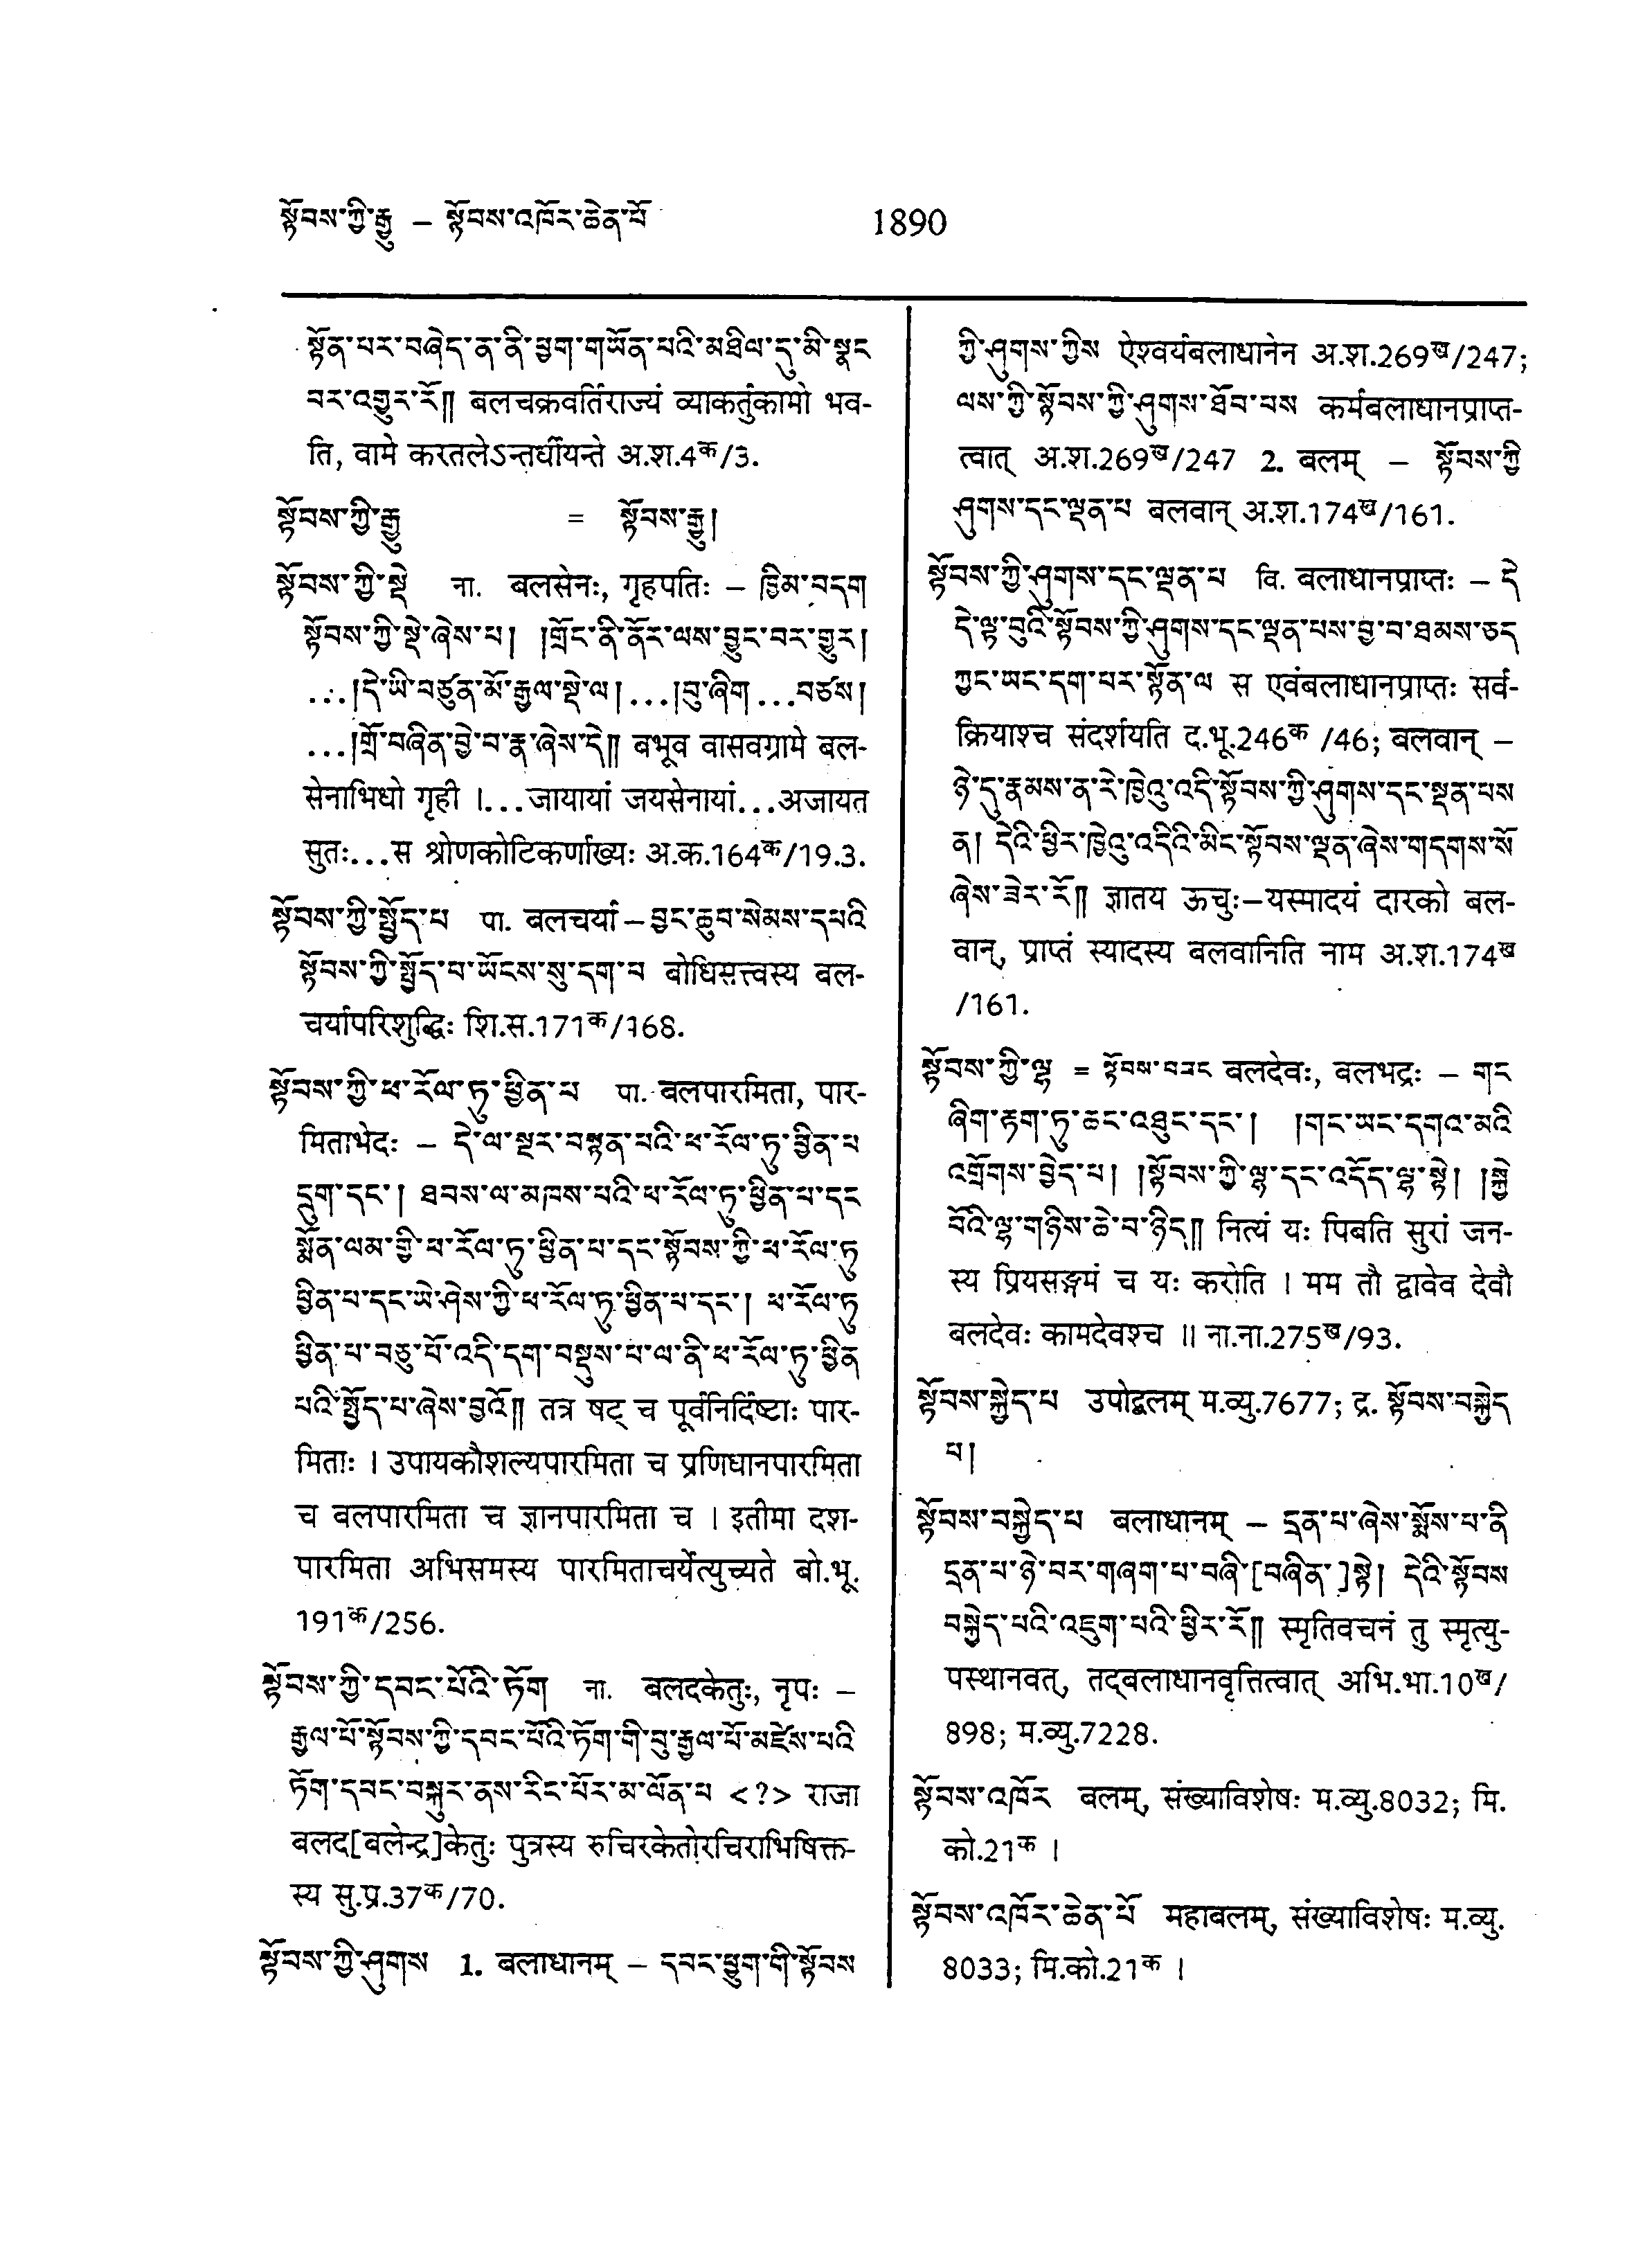 སྟོབས་ཀྱི་རྒྱུ – སྟོབས་འཁོར་ཆེན་པོ 1890
སྟོན་པར་བཞེད་ན་ནི་ཕྱག་གཡོན་པའི་མཐིལ་དུ་མི་སྣང
བར་འགྱུར་རོ༎ बलचक्रवर्तिराज्यं व्याकर्तुकामो भव-
ति, वामे करतलेऽन्तर्धीयन्ते अ.श.4क/3.
སྟོབས་ཀྱི་རྒྱུ = སྟོབས་རྒྱུ།
སྟོབས་ཀྱི་སྡེ ना. बलसेनः, गृहपतिः – ཁྱིམ་བདག
སྟོབས་ཀྱི་སྡེ་ཞེས་པ། །གྲོང་ནི་ནོར་ལས་བྱུང་བར་གྱུར།
...།དེ་ཡི་བཙུན་མོ་རྒྱལ་སྡེ་ལ།...།བུ་ཞིག...བཙས།
...།གྲོ་བཞིན་བྱེ་བ་རྣ་ཞེས་དེ༎ बभूव वासवग्रामे बल-
सेनाभिधो गृही ।...जायायां जयसेनायां...अजायत
सुतः...स श्रोणकोटिकर्णाख्यः अ.क.164क/19.3.
སྟོབས་ཀྱི་སྤྱོད་པ पा. बलचर्या – བྱང་ཆུབ་སེམས་དཔའི
སྟོབས་ཀྱི་སྤྱོད་པ་ཡོངས་སུ་དག་པ बोधिसत्त्वस्य बल-
चर्यापरिशुद्धिः शि.स.171क/168.
སྟོབས་ཀྱི་ཕ་རོལ་ཏུ་ཕྱིན་པ पा. बलपारमिता, पार-
मिताभेदः – དེ་ལ་སྔར་བསྟན་པའི་ཕ་རོལ་ཏུ་ཕྱིན་པ
དྲུག་དང་། ཐབས་ལ་མཁས་པའི་ཕ་རོལ་ཏུ་ཕྱིན་པ་དང
སྨོན་ལམ་གྱི་ཕ་རོལ་ཏུ་ཕྱིན་པ་དང་སྟོབས་ཀྱི་ཕ་རོལ་ཏུ
ཕྱིན་པ་དང་ཡེ་ཤེས་ཀྱི་ཕ་རོལ་ཏུ་ཕྱིན་པ་དང་། ཕ་རོལ་ཏུ
ཕྱིན་པ་བཅུ་པོ་འདི་དག་བསྡུས་པ་ལ་ནི་ཕ་རོལ་ཏུ་ཕྱིན
པའི་སྤྱོད་པ་ཞེས་བྱའོ༎ तत्र षट् च पूर्वनिर्दिष्टाः पार-
मिताः । उपायकौशल्यपारमिता च प्रणिधानपारमिता
च बलपारमिता च ज्ञानपारमिता च । इतीमा दश-
पारमिता अभिसमस्य पारमिताचर्येत्युच्यते बो.भू.
191क/256.
སྟོབས་ཀྱི་དབང་པོའི་ཏོག ना. बलदकेतुः, नृपः –
རྒྱལ་པོ་སྟོབས་ཀྱི་དབང་པོའི་ཏོག་གི་བུ་རྒྱལ་པོ་མཛེས་པའི
ཏོག་དབང་བསྐུར་ནས་རིང་པོར་མ་ལོན་པ <?> राजा
बलद[बलेन्द्र]केतुः पुत्रस्य रुचिरकेतोरचिराभिषिक्त-
स्य सु.प्र.37क/70.
སྟོབས་ཀྱི་ཤུགས 1. बलाधानम् – དབང་ཕྱུག་གི་སྟོབས
ཀྱི་ཤུགས་ཀྱིས ऐश्वर्यबलाधानेन अ.श.269ख/247;
ལས་ཀྱི་སྟོབས་ཀྱི་ཤུགས་ཐོབ་པས कर्मबलाधानप्राप्त-
त्वात् अ.श.269ख/247 2. बलम् – སྟོབས་ཀྱི
ཤུགས་དང་ལྡན་པ बलवान् अ.श.174ख/161.
སྟོབས་ཀྱི་ཤུགས་དང་ལྡན་པ वि. बलाधानप्राप्तः – དེ
དེ་ལྟ་བུའི་སྟོབས་ཀྱི་ཤུགས་དང་ལྡན་པས་བྱ་བ་ཐམས་ཅད
ཀྱང་ཡང་དག་པར་སྟོན་ལ स एवंबलाधानप्राप्तः सर्व-
क्रियाश्च संदर्शयति द.भू.246क /46; बलवान् –
ཉེ་དུ་རྣམས་ན་རེ་ཁྱེའུ་འདི་སྟོབས་ཀྱི་ཤུགས་དང་ལྡན་པས
ན། དེའི་ཕྱིར་ཁྱེའུ་འདིའི་མིང་སྟོབས་ལྡན་ཞེས་གདགས་སོ
ཞེས་ཟེར་རོ༎ ज्ञातय ऊचुः–यस्मादयं दारको बल-
वान्, प्राप्तं स्यादस्य बलवानिति नाम अ.श.174ख
/161.
སྟོབས་ཀྱི་ལྷ = སྟོབས་བཟང बलदेवः, बलभद्रः – གང
ཞིག་རྟག་ཏུ་ཆང་འཐུང་དང་། །གང་ཡང་དགའ་མའི
འགྲོགས་བྱེད་པ། །སྟོབས་ཀྱི་ལྷ་དང་འདོད་ལྷ་སྟེ། །སྐྱེ
བོའི་ལྷ་གཉིས་ཆེ་བ་ཉིད༎ नित्यं यः पिबति सुरां जन-
स्य प्रियसङ्गमं च यः करोति । मम तौ द्वावेव देवौ
बलदेवः कामदेवश्च ॥ ना.ना.275ख/93.
སྟོབས་སྐྱེད་པ उपोद्बलम् म.व्यु.7677; द्र. སྟོབས་བསྐྱེད
པ།
སྟོབས་བསྐྱེད་པ बलाधानम् – དྲན་པ་ཞེས་སྨོས་པ་ནི
དྲན་པ་ཉེ་བར་གཞག་པ་བཞི་[བཞིན་]སྟེ། དེའི་སྟོབས
བསྐྱེད་པའི་འཇུག་པའི་ཕྱིར་རོ༎ स्मृतिवचनं तु स्मृत्यु-
पस्थानवत्, तद्बलाधानवृत्तित्वात् अभि.भा.10ख/
898; म.व्यु.7228.
སྟོབས་འཁོར बलम्, संख्याविशेषः म.व्यु.8032; मि.
को.21क ।
སྟོབས་འཁོར་ཆེན་པོ महाबलम्, संख्याविशेषः म.व्यु.
8033; मि.को.21क ।